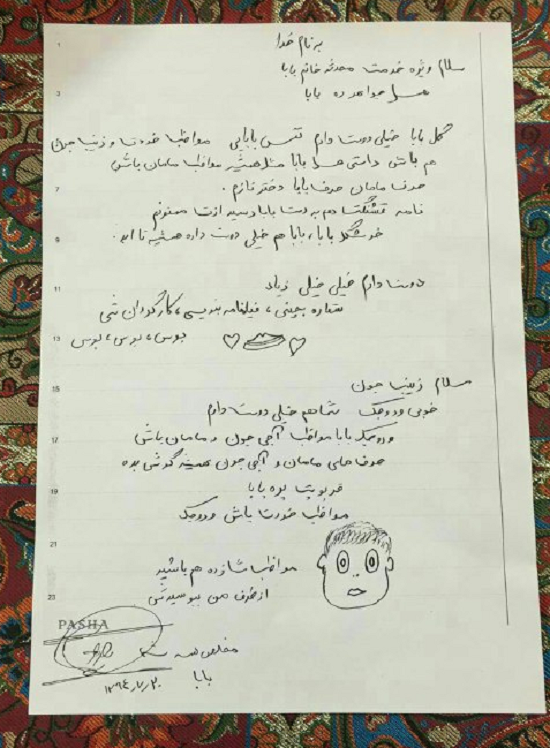 به نام خدا
سلام ویژه خدمت محدثه خانم بابا
بابا
گل بابا خیلی دوست دارم نفس بابایی مواظب خودت و زینبا جون
هم باش راستی بابا مثل همیشه مواظب مامان باش
حرف مامان حرف بابا دختر نازم.
نامه قشنگت هم به دست بابا رسید ازت ممنونم
خوشگل بابا، بابا هم خیلی دوست داره همیشه تا ابد.
دوست دارم خیلی خیلی زیاد
ستاره بچینی، فیلمنامه بنویسی، کارگردان شی
بوس، بوس، بوس
سلام زینبا جون
خوبی وروجک شما هم خیلی دوست دارم
وروجک بابا مواظب آجی جون و مامان باش
حرف های مامان و آجی جون همیشه گوش بده
قربونت بره بابا
مواظب خودت باش وروجک
مواظب شازده هم باشید
از طرف من ببوسیدش
PASHA
مخلص همه شما
بابا
1
3
7
9
11
13
15
17
19
21